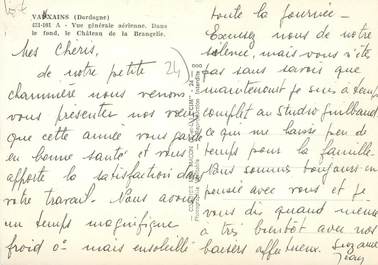 VANXAINS (Dordogne)
424-101 A - Vue générale aérienne. Dans
le fond, le Château de la Brangelie.
24
Mes Chéris,
de notre petite
chaumière nous venons
vous présenter nos vœux
que cette année vous garde
en bonne santé et vous
apporte la satisfaction dans
votre travail. Nous avons
un temps magnifique
froid 0° mais ensoleillé
toute la journée -
Excusez nous de notre
silence, mais vous n'êtes
pas sans savoir que
maintenant je suis à temps
complet au Studio Guilbaud
ce qui me laisse peu de
temps pour la famille.
Nous sommes toujours en
pensée avec vous et je
vous dis quand même
à très bientôt avec nos
baisers affectueux. Suzanne
Jean